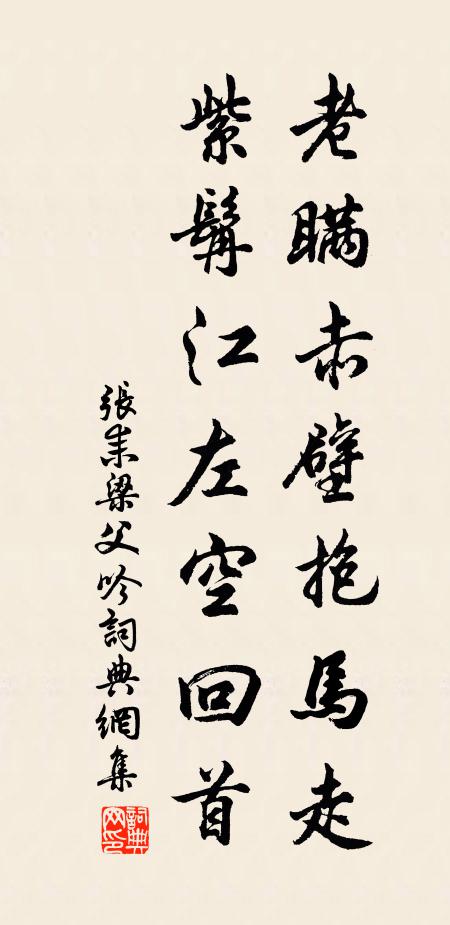 老瞞赤壁抱馬走
紫髯江左空回首
張耒梁父吟詞典網集
詞典網印